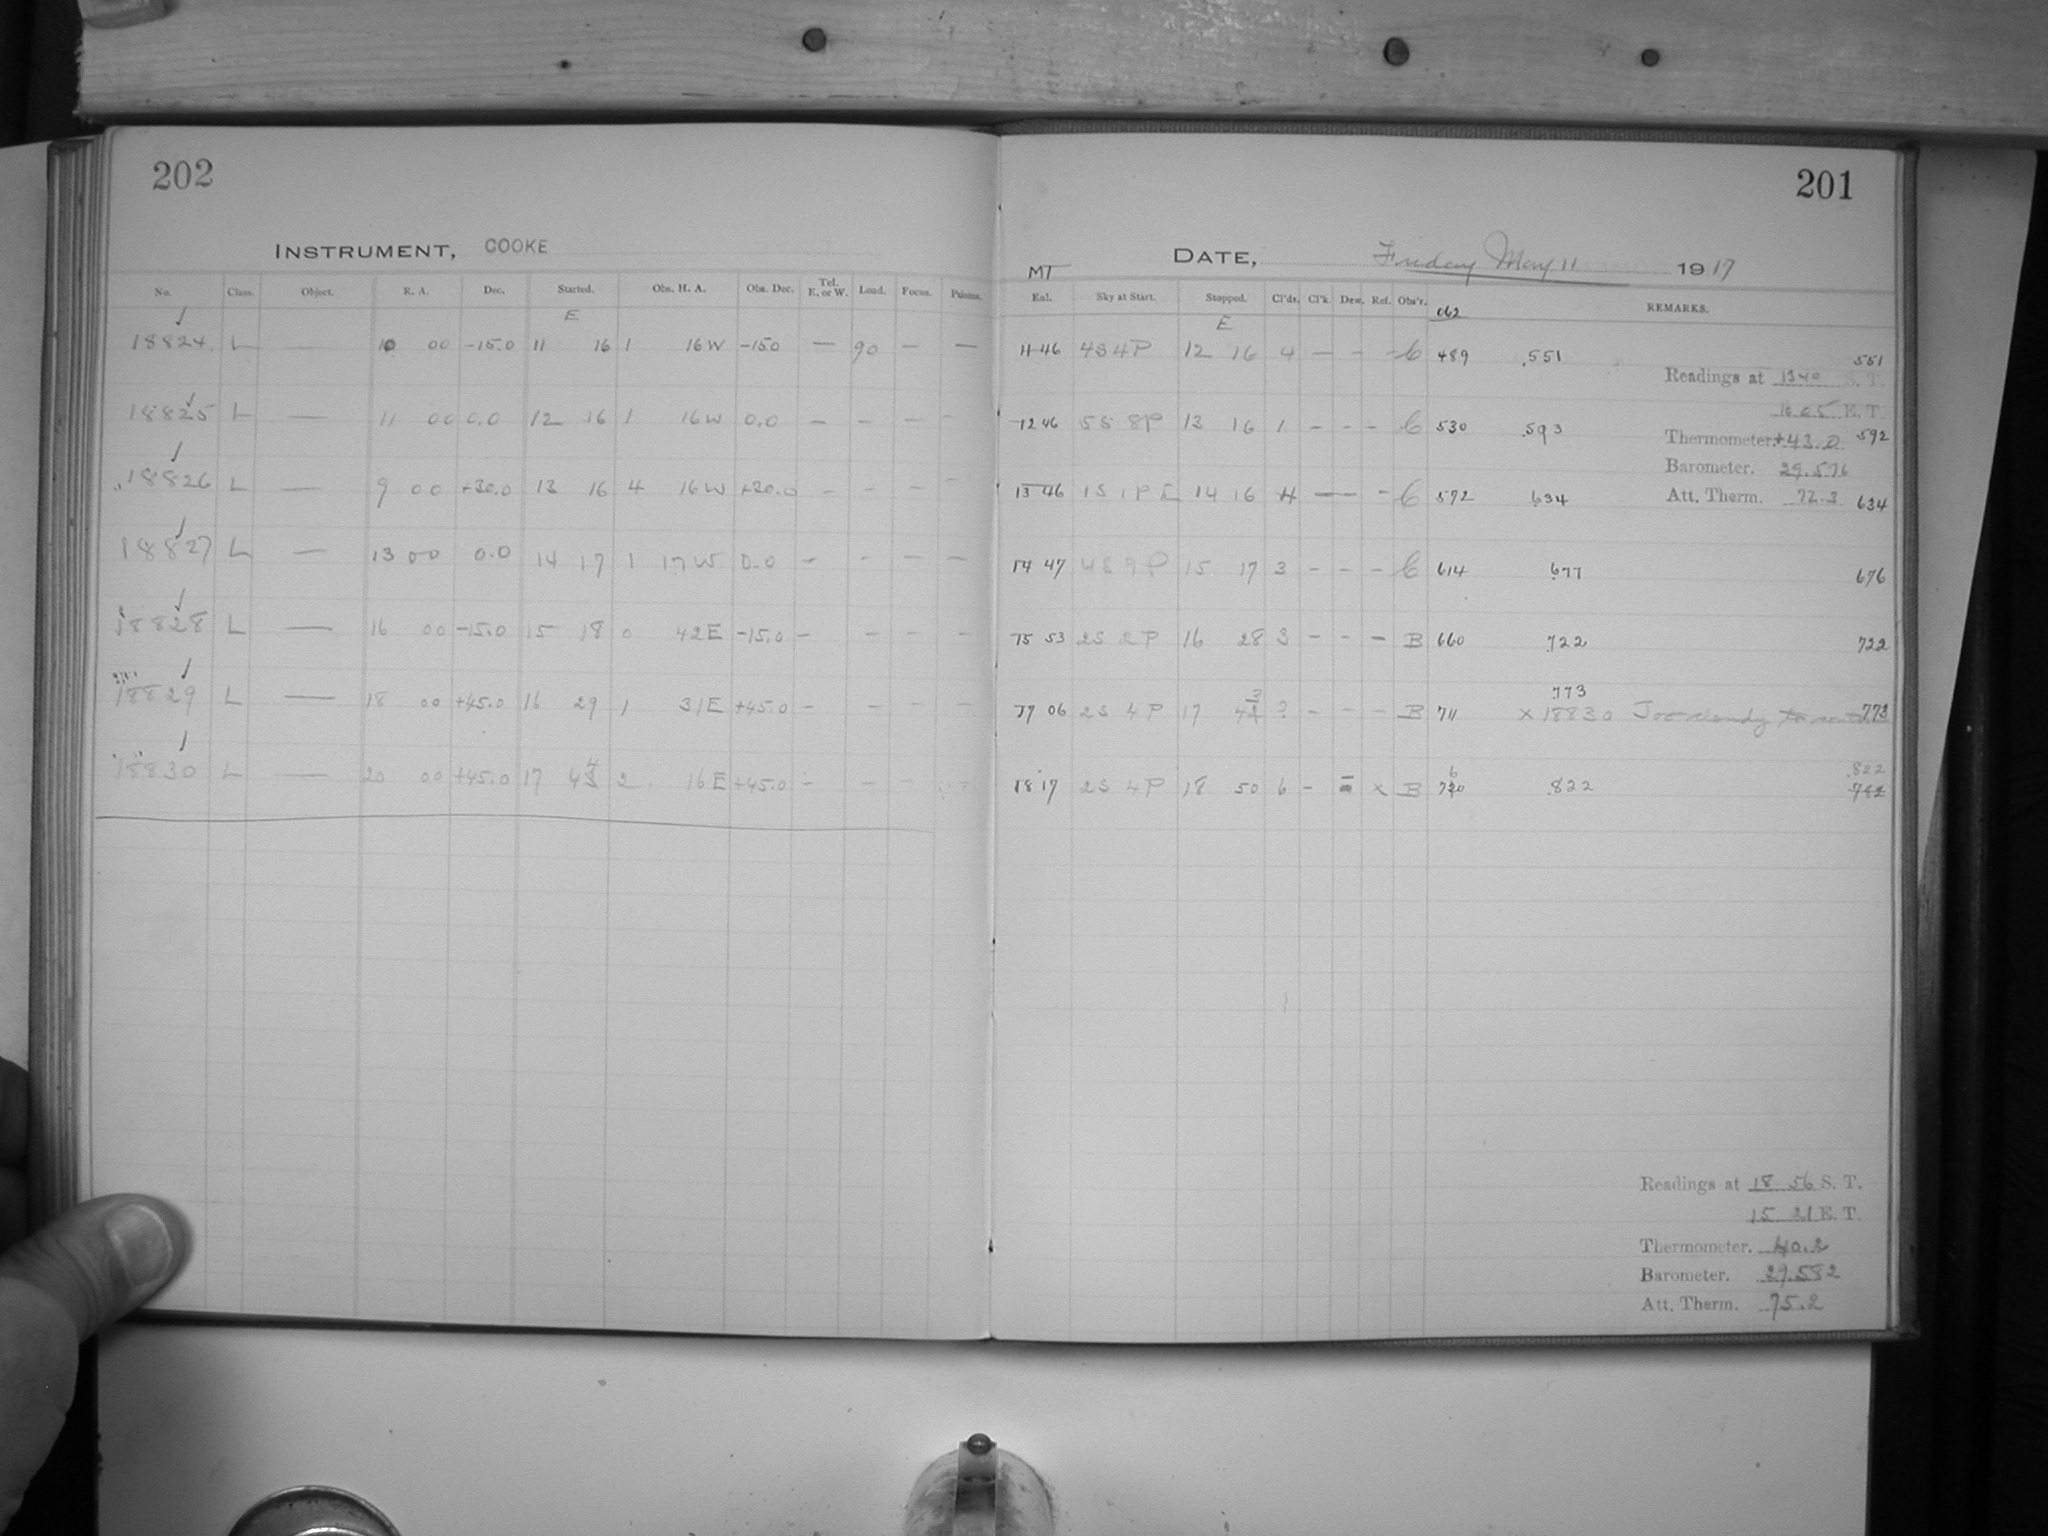 202
INSTRUMENT, COOKE
No. Class. Object. R. A. Dec. Started. Obs. H. A. Obs. Dec. Tel. E. or W. Load. Focus. Prisms.
E
18824 L — 10 00 -15.0 11 16 1 16 W -15.0 — 90 — —
18825 L — 11 00 0.0 12 16 1 16 W 0.0 — — — —
18826 L — 9 00 +30.0 13 16 4 16 W +30.0 — — — —
18827 L — 13 00 0.0 14 17 1 17 W 0.0 — — — —
18828 L — 16 00 -15.0 15 18 0 42 E -15.0 — — — —
18829 L — 18 00 +45.0 16 29 1 31 E +45.0 — — — —
18830 L — 20 00 +45.0 17 44 2 16 E +45.0 — — —
201
DATE, Friday May 11 1917
MT
Eal. Sky at Start. Stopped. Cl'ds. Cl'k. Dew. Ref. Obs'r. REMARKS.
062
E
11 46 4S 4P 12 16 4 — — — C 489 .551 551
Readings at 13 40 S. T.
12 46 5S 8P 13 16 1 — — — C 530 .593 592
E. T.
Thermometer. +43.0
Barometer. 29.576
13 46 1S 1P 14 16 — — C 572 .634 634
Att. Therm. 72.3
14 47 4S 9P 15 17 3 — — — C 614 .677 676
15 53 2S 2P 16 28 3 — — — B 660 .722 722
.773
17 06 2S 4P 17 43 ? — — — B 711 × 18830 Too cloudy to 773
.822
18 17 2S 4P 18 50 6 — × B 760 .822 782
Readings at 18 56 S. T.
15 21 E. T.
Thermometer. 40.2
Barometer. 29.582
Att. Therm. 75.2